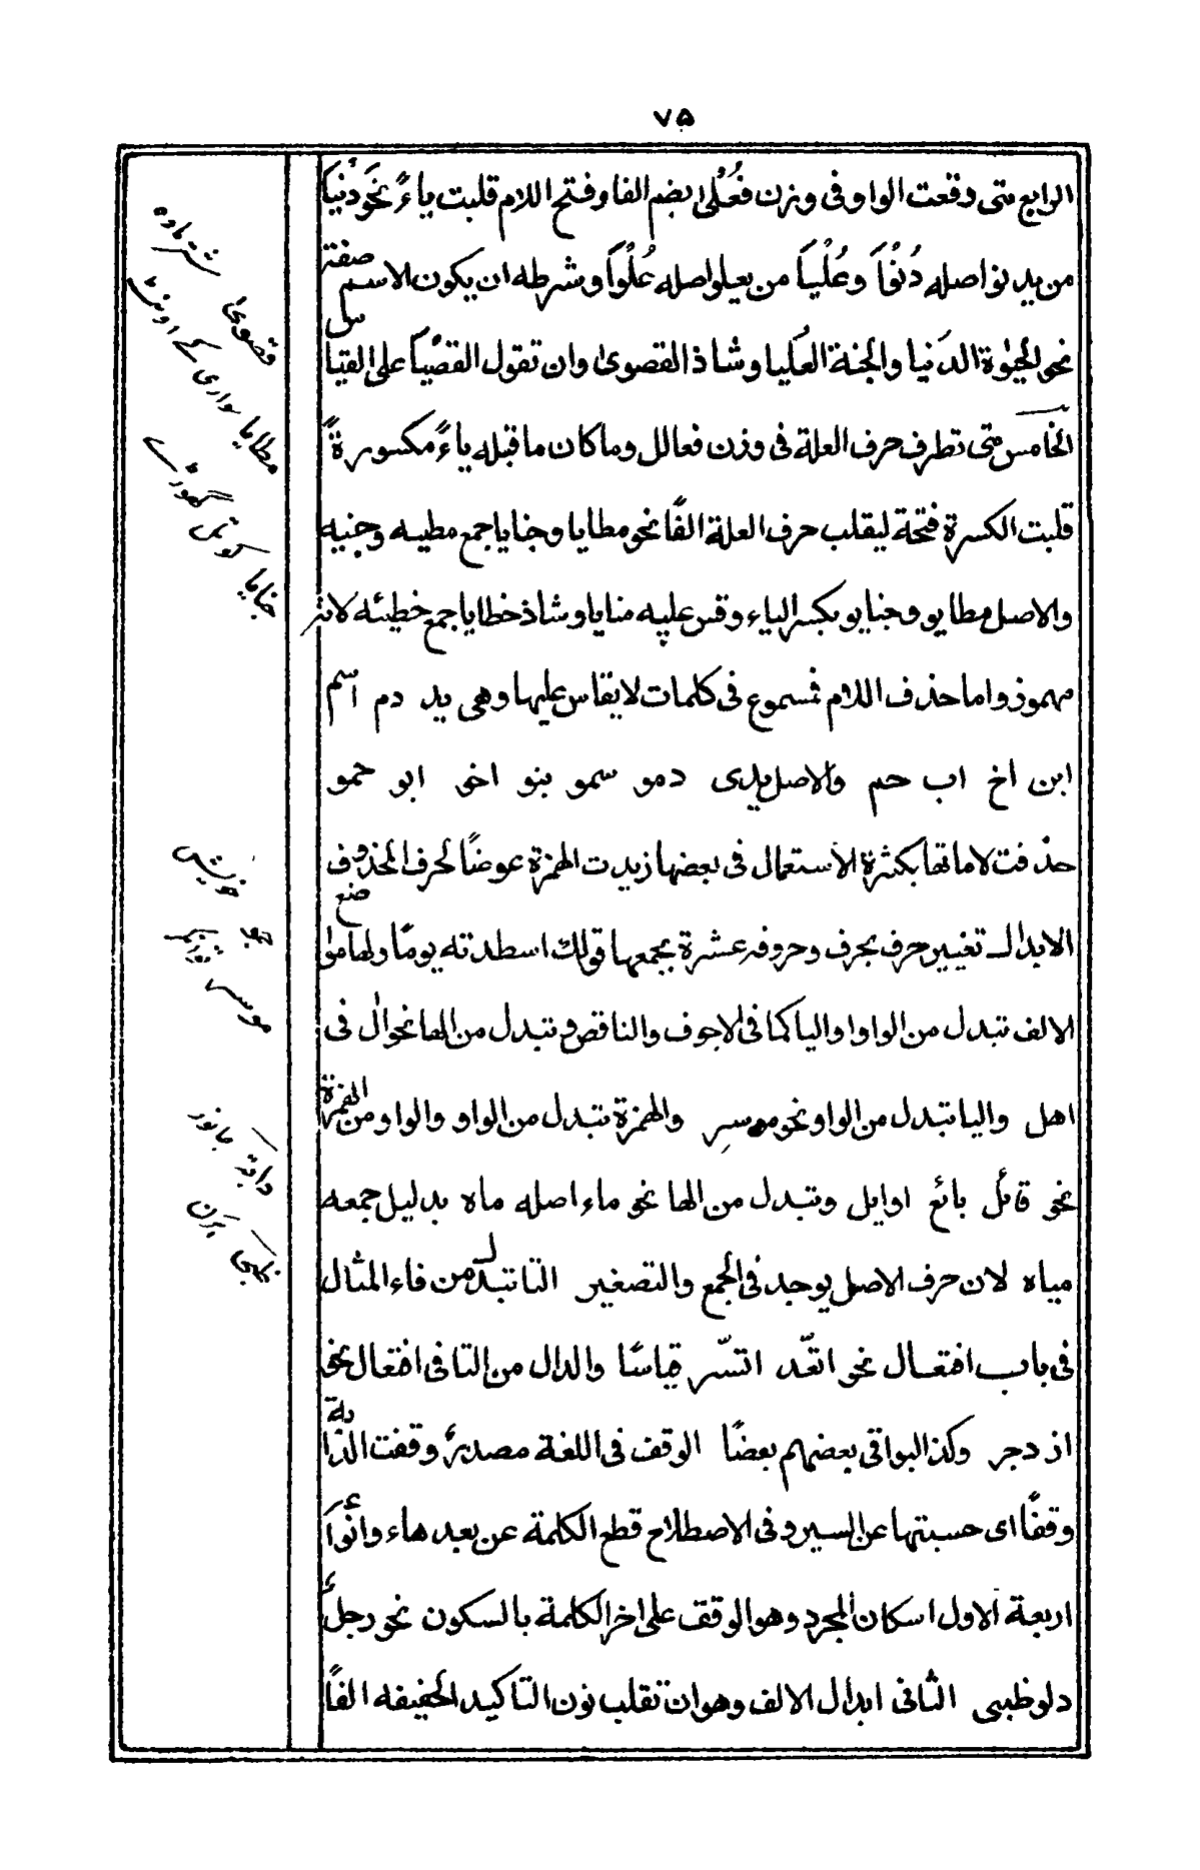 ۷۵
الرابع متى وقعت الواو فى وزن فُعْلٰى بضم الفا وفتح اللام قلبت ياءً نحو دُنْيَا
من يدنو اصله دُنْوَاً وعُلْيَاً من يعلو اصله عُلْوَاً وشرطه ان يكون الاسم صفة
نحو الحيٰوة الدنيا والجنة العُليا وشاذ القصوىٰ وان تقول القصْيَا على القياس
الخامس متى تطرف حرف العلة فى وزن فعالل وما كان ما قبله ياءً مكسورةً
قلبت الكسرة فتحة ليقلب حرف العلة الفًا نحو مطايا وجنايا جمع مطيه وجنيه
والاصل مطايو وجنايو بكسر الياء وقس عليه منايا وشاذ خطايا جمع خطيئه لانه
مهموز واما حذف اللام فمسموع فى كلمات لا يقاس عليها وهى يد دم اسم
ابن اخ اب حم والاصل يدى دمو سمو بنو اخو ابو حمو
حذفت لاماتها بكثرة الاستعمال فى بعضها زيدت الهمزة عوضًا لحرف المحذوف
الابدال تغيير حرف بحرف وحروفه عشرة يجمعها قولك اسطدته يومًا ولها مواضع
الالف تبدل من الواو واليا كما فى الاجوف والناقص وتبدل من الها نحو اٰل فى
اهل واليا تبدل من الواو نحو موسر والهمزة تبدل من الواو والواو من الهمزة
نحو قائل بائع اوايل وتبدل من الها نحو ماء اصله ماه بدليل جمعه
مياه لان حرف الاصل يوجد فى الجمع والتصغير التا تبدل من فاء المثال
فى باب افتعال نحو اتّعد اتّسر قياسًا والدال من التا فى افتعال نحو
ازدجر وكذا البواقى بعضهم بعضًا الوقف فى اللغة مصدرٌ وقفت الدابة
وقفًا اى حسبتها عن السير وفى الاصطلاح قطع الكلمة عن بعدها وانواع
اربعة الاول اسكان المجرد وهو الوقف على اخر الكلمة بالسكون نحو رجلْ
دلو ظبى الثانى ابدال الالف وهو ان تقلب نون التاكيد الخفيفه الفًا
قصوىٰ شتر ماده
مطايا سوارى کے اونٹ
جنايا کوتل گھوڑے
حمو خويش
موسر
دابة جانور
ظبى ہرن